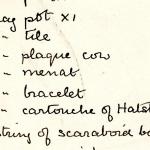 pot XI
" tile
" plaque cow
" menat
" bracelet
" cartouche of Hatsh
string of scaraboid be